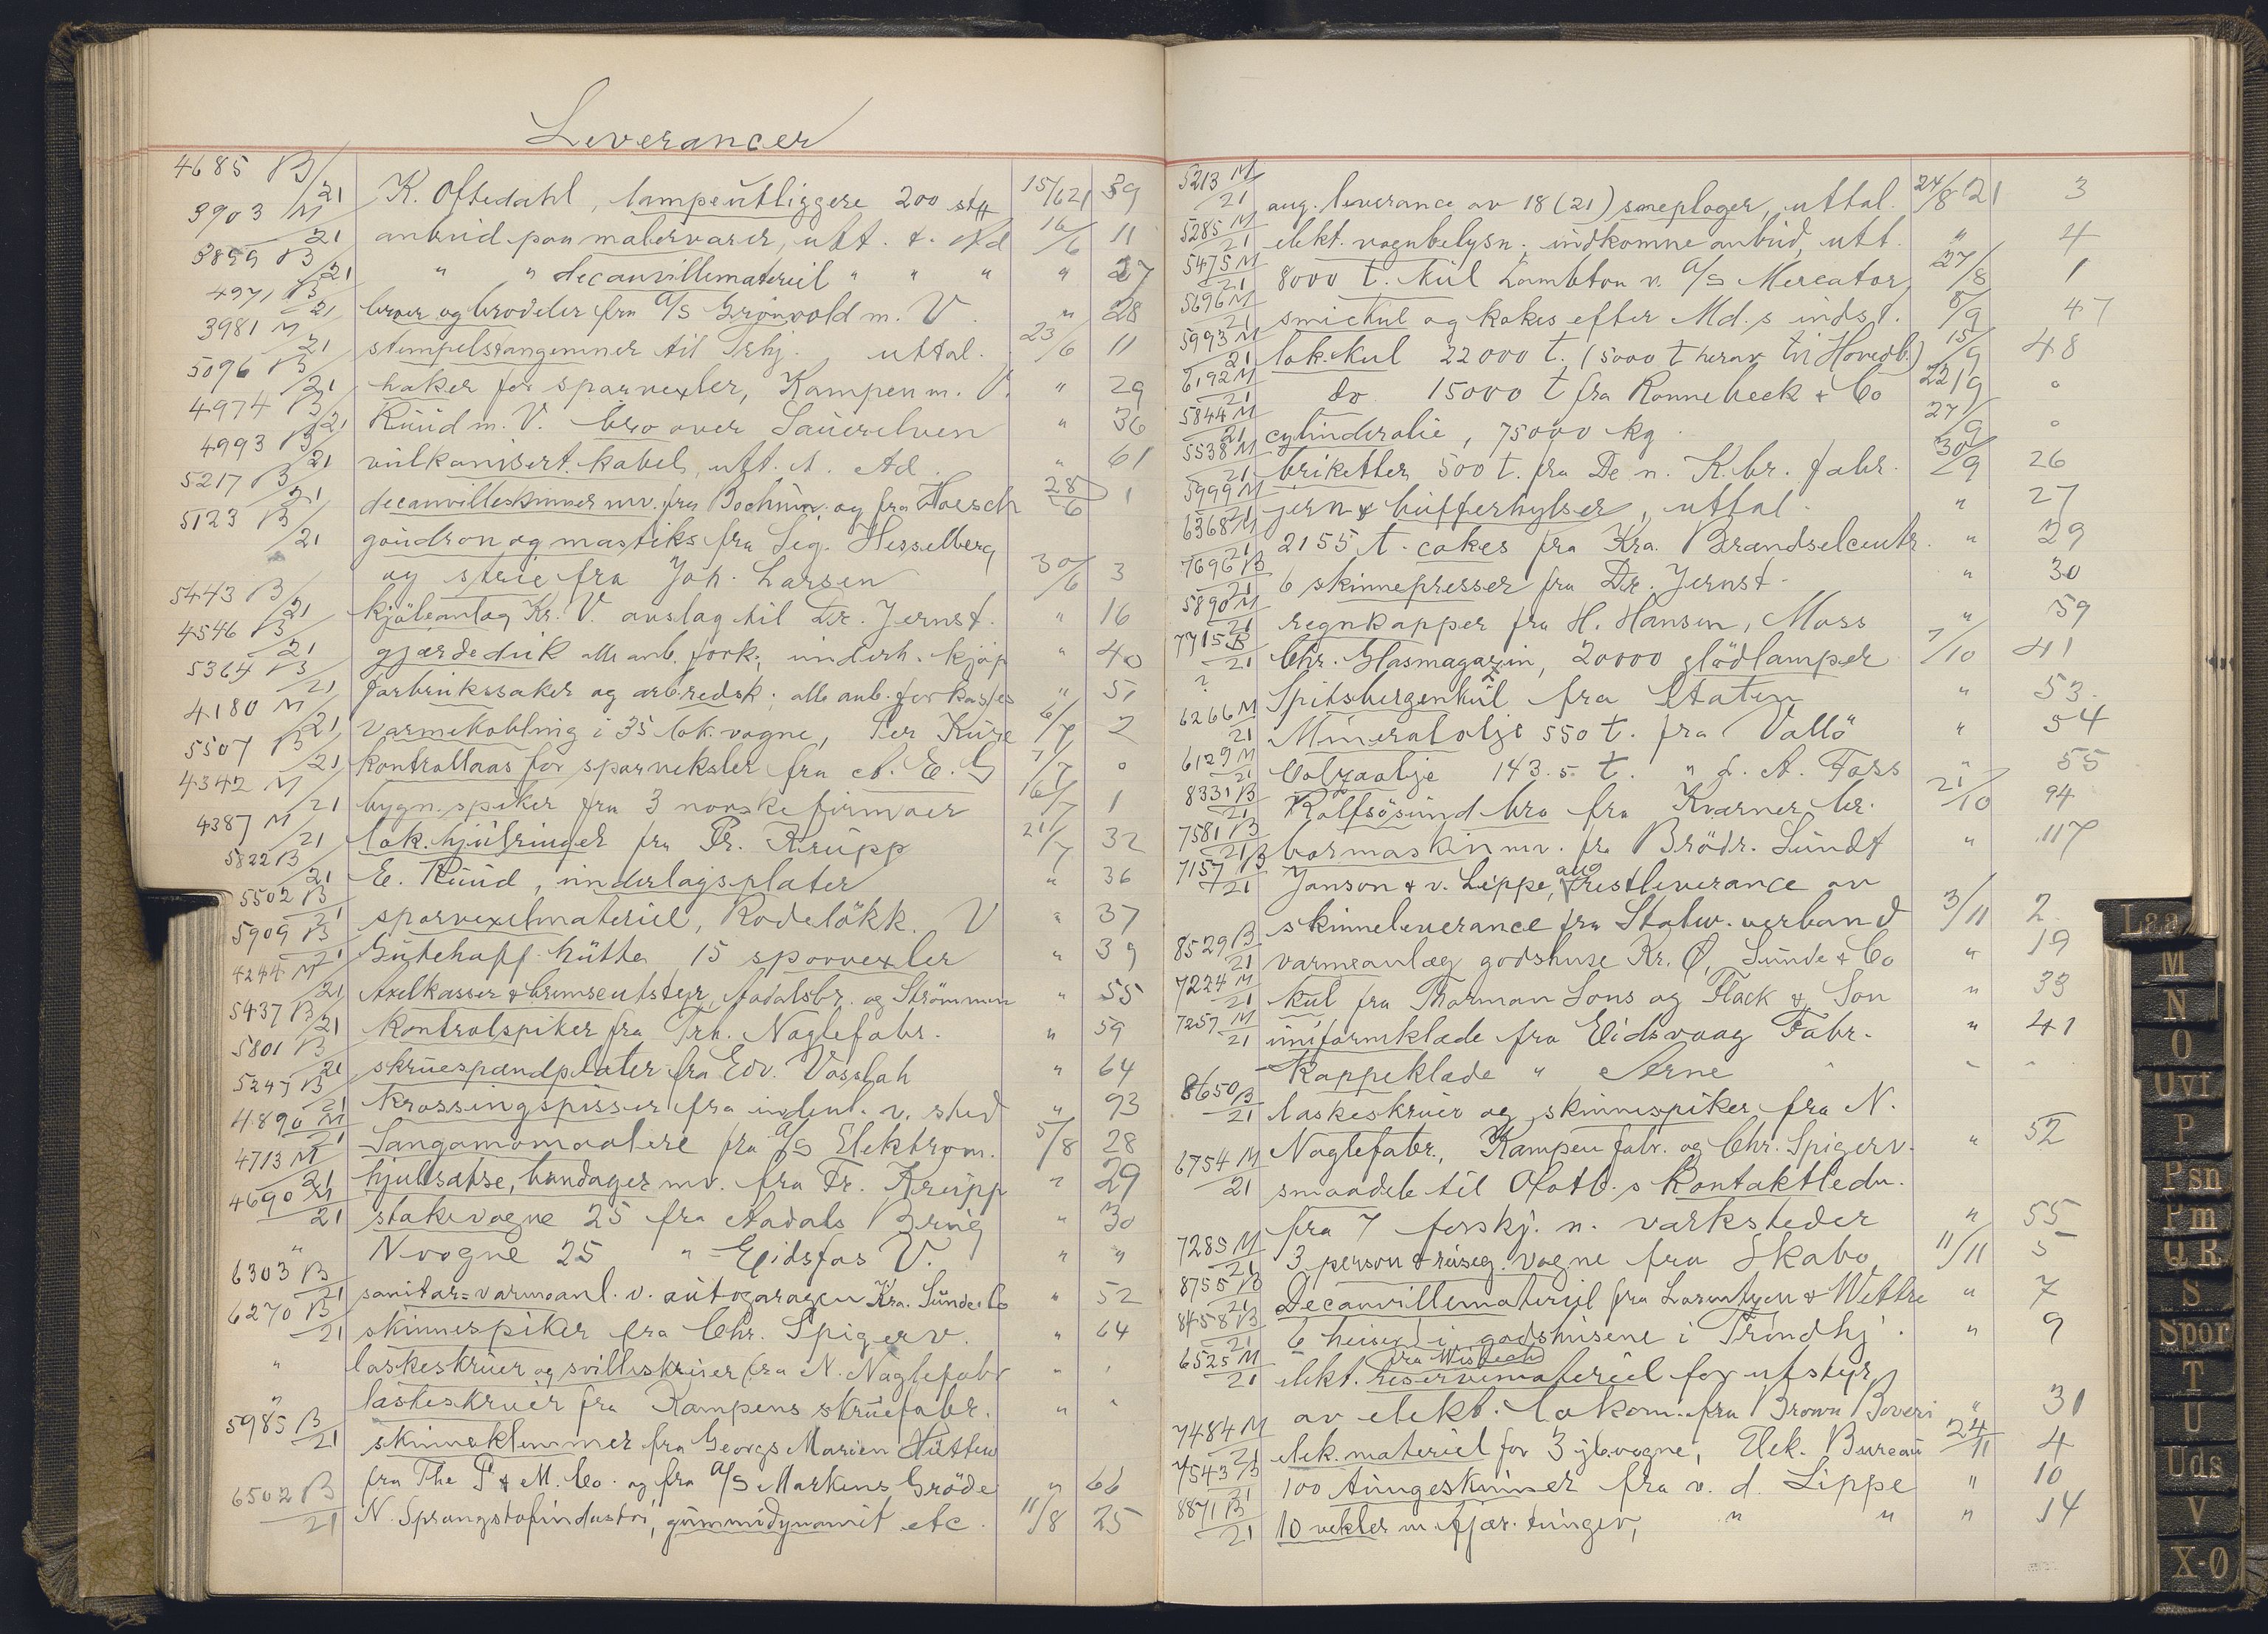 Leverancer
4685 B/21 K. Oftedahl, lampeutliggere 200 stk 15/6 21 39
3903 M/21 anbud paa malervarer, utt. f. Ad 16/6 11
3899 B/21 " " decauvillemateriel " " " " 27
4971 B/21 broer og brodeler fra A/S Grönvold m. V. " 28
3981 M/21 stempelstangemner til Trhj., uttal. 23/6 11
5096 B/21 haker for sporvexler, Kampen m. V. " 29
4974 B/21 Ruud m. V. bro over Sauerelven " 36
4993 B/21 vulkanisert kabel, utt. f. Ad. " 61
5217 B/21 decauvilleskinner mv. fra Bochum og fra Hoesch 28/6 1
5123 B/21 goudron og mastiks fra Sig. Hesselberg
og strie fra Joh. Larsen 30/6 3
5443 B/21 kjöleanlæg Kr. V. anslag til Dr. Jernst. " 16
4546 B/21 gjærdeduk alle anb. fork., underh. kjöp " 40
5364 B/21 forbrukssaker og arb.redsk; alle anb. forkastes " 51
4180 M/21 varmekobling i 35 lok. vogne, Per Kure 6/7 2
5507 B/21 kontrollaas for sporveksler fra A. E. G 7/7 0
4342 M/21 bygn. spiker fra 3 norske firmaer 16/7 1
4387 M/21 lok. hjulringer fra Fr. Krupp 21/7 32
5822 B/21 E. Ruud, underlagsplater " 36
5502 B/21 sporvexelmateriel, Rodelökk. V " 37
5909 B/21 Gutehoff. hütte 15 sporvexler " 39
4244 M/21 Axelkasser & bremseutstyr, Aadalsbr. og Strömmen " 55
5437 B/21 Kontrolspiker fra Trh. Naglefabr. " 59
5801 B/21 skruespændplater fra Edv. Vosslah " 64
5247 B/21 Krossingspisser fra indenl. v. sted " 93
4890 M/21 Sangamomaalere fra A/S Elektrom. 5/8 28
4713 M/21 hjulsatse, bandager mv. fra Fr. Krupp " 29
4690 M/21 stakevogne 25 fra Aadals Brug " 30
" N vogne 25 " Eidsfos V. " "
6303 B/21 sanitær= varmeanl. v. autogaragen Kra. Sunde & Co " 52
6270 B/21 skinnespiker fra Chr. Spigerv. " 64
" laskeskruer og svilleskruer fra N. Naglefabr " "
" laskeskruer fra Kampens skruefabr. " "
5985 B/21 skinneklemmer fra Georgs Marien Hütten
fra The P & M. Co. og fra A/S Markens Gröde " 66
6502 B/21 N. Sprængstofindustri, gummidynamit etc. 11/8 25
5213 M/21 aug. leverance av 18 (21) sneploger, uttal. 24/8 21 3
5285 M/21 elekt. vognbelysn. indkomne anbud, utt. " 4
5475 M/21 8000 t. kul Lambton v. A/S Mercator 27/8 1
5696 M/21 smiekul og kokes efter Md.s indst. 8/9 47
5993 M/21 lok. kul 22000 t. (5000 t herav til Hovedb.) 15/9 48
6192 M/21 do 15000 t fra Ronnebeck & Co 22/9 0
5844 M/21 cylinderolie, 75000 kg. 27/9 0
5538 M/21 briketter 500 t. fra De n. K.br. fabr. 30/9 26
5999 M/21 jern & bufferhylser, uttal. " 27
6368 M/21 2155 t. cokes fra Kra. Brændselcentr. " 29
7696 B/21 6 skinnepresser fra Dr. Jernst. " 30
5890 M/21 regnkapper fra H. Hansen, Moss " 59
7715 B/21 Chr. Glasmagazin, 20000 glödlamper 7/10 41
? Spitsbergenkul fra Staten " 53.
6266 M/21 Mineralolje 550 t. fra Vallö " 54
6129 M/21 Colzaolje 143.5 t. " d. A. Foss " 55
8331 B/21 Rolfsösund bro fra Kværner br. 21/10 94
7581 B/21 bormaskin mv. fra Brödr. Sundt " 117
7157 B/21 Janson & v. Lippe, ang restleverance av
skinneleverance fra Stalw. verband 3/11 2
8529 B/21 varmeanlæg godshuse Kr. Ø, Sunde & Co " 19
7224 M/21 kul fra Tharman Sons og Flack & Son " 33
7257 M/21 uniformklæde fra Eidsvaag Fabr. " 41
Kappeklæde " Arne " "
8650 B/21 laskeskruer og skinnespiker fra N.
Naglefabr., Kampen fabr. og Chr. Spigerv. " 52
6754 M/21 smaadele til Ofotb.s Kontaktledn.
fra 7 forskj. n. værksteder " 55
7285 M/21 3 person & reiseg. vogne fra Skabo 11/11 5
8755 B/21 Decauvillemateriel fra Lorentzen & Wettre " 7
8458 B/21 6 heiser i godshusene i Trondhj. " 9
6525 M/21 elekt. reservemateriel for utstyr
av elekt. lokom. fra Brown Boveri " 31
7484 M/21 elek. materiel for 3 jb.vogne, Elek. Bureau 24/11 4
7543 B/21 100 tungeskinner fra v. d. Lippe " 10
8871 B/21 10 veksler m. fjær. tunger, " " " 14
Laa
M
N
O
Ovf
P
Psn
Pm
Q R
S
Spor
T
U
Uds
V
X-Ø